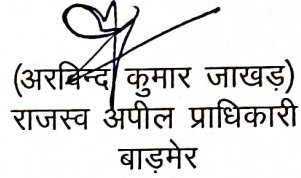 (अरबिन्द कुमार जाखड़)
राजस्व अपील प्राधिकारी
बाड़मेर